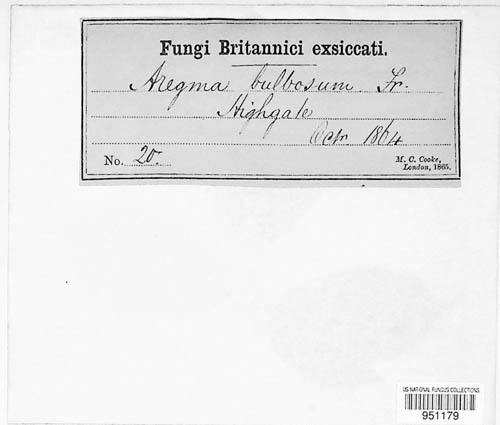 Fungi Britannici exsiccati.
Aregma bulbosum Fr.
Highgate
Octr 1864
No. 20.
M. C. Cooke,
London, 1865.
US NATIONAL FUNGUS COLLECTIONS
951179